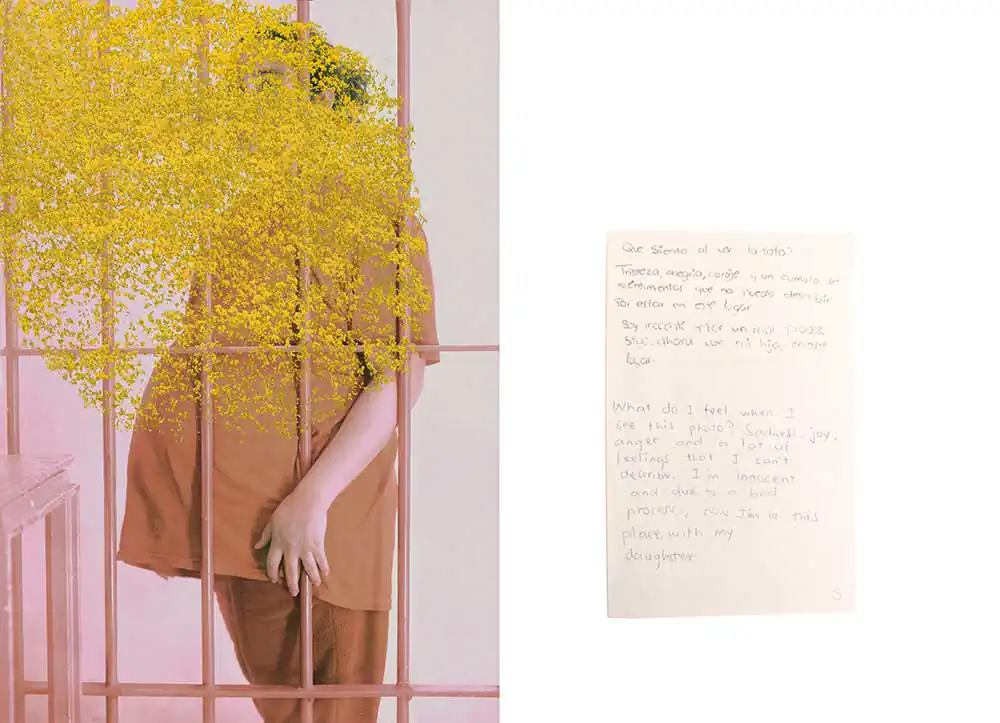 Que siento al ver la foto?
Tristeza, alegria, coraje y un cumulo de
sentimientos que no puedo describir
Por estar en este lugar
Soy inocente y por un mal proceso
sigo ahora con mi hija, en este
lugar.
What do I feel when I
see this photo? Sadness, joy,
anger and a lot of
feelings that I can't
describe. I'm innocent
and due to a bad
process, now I'm in this
place with my
daughter
S